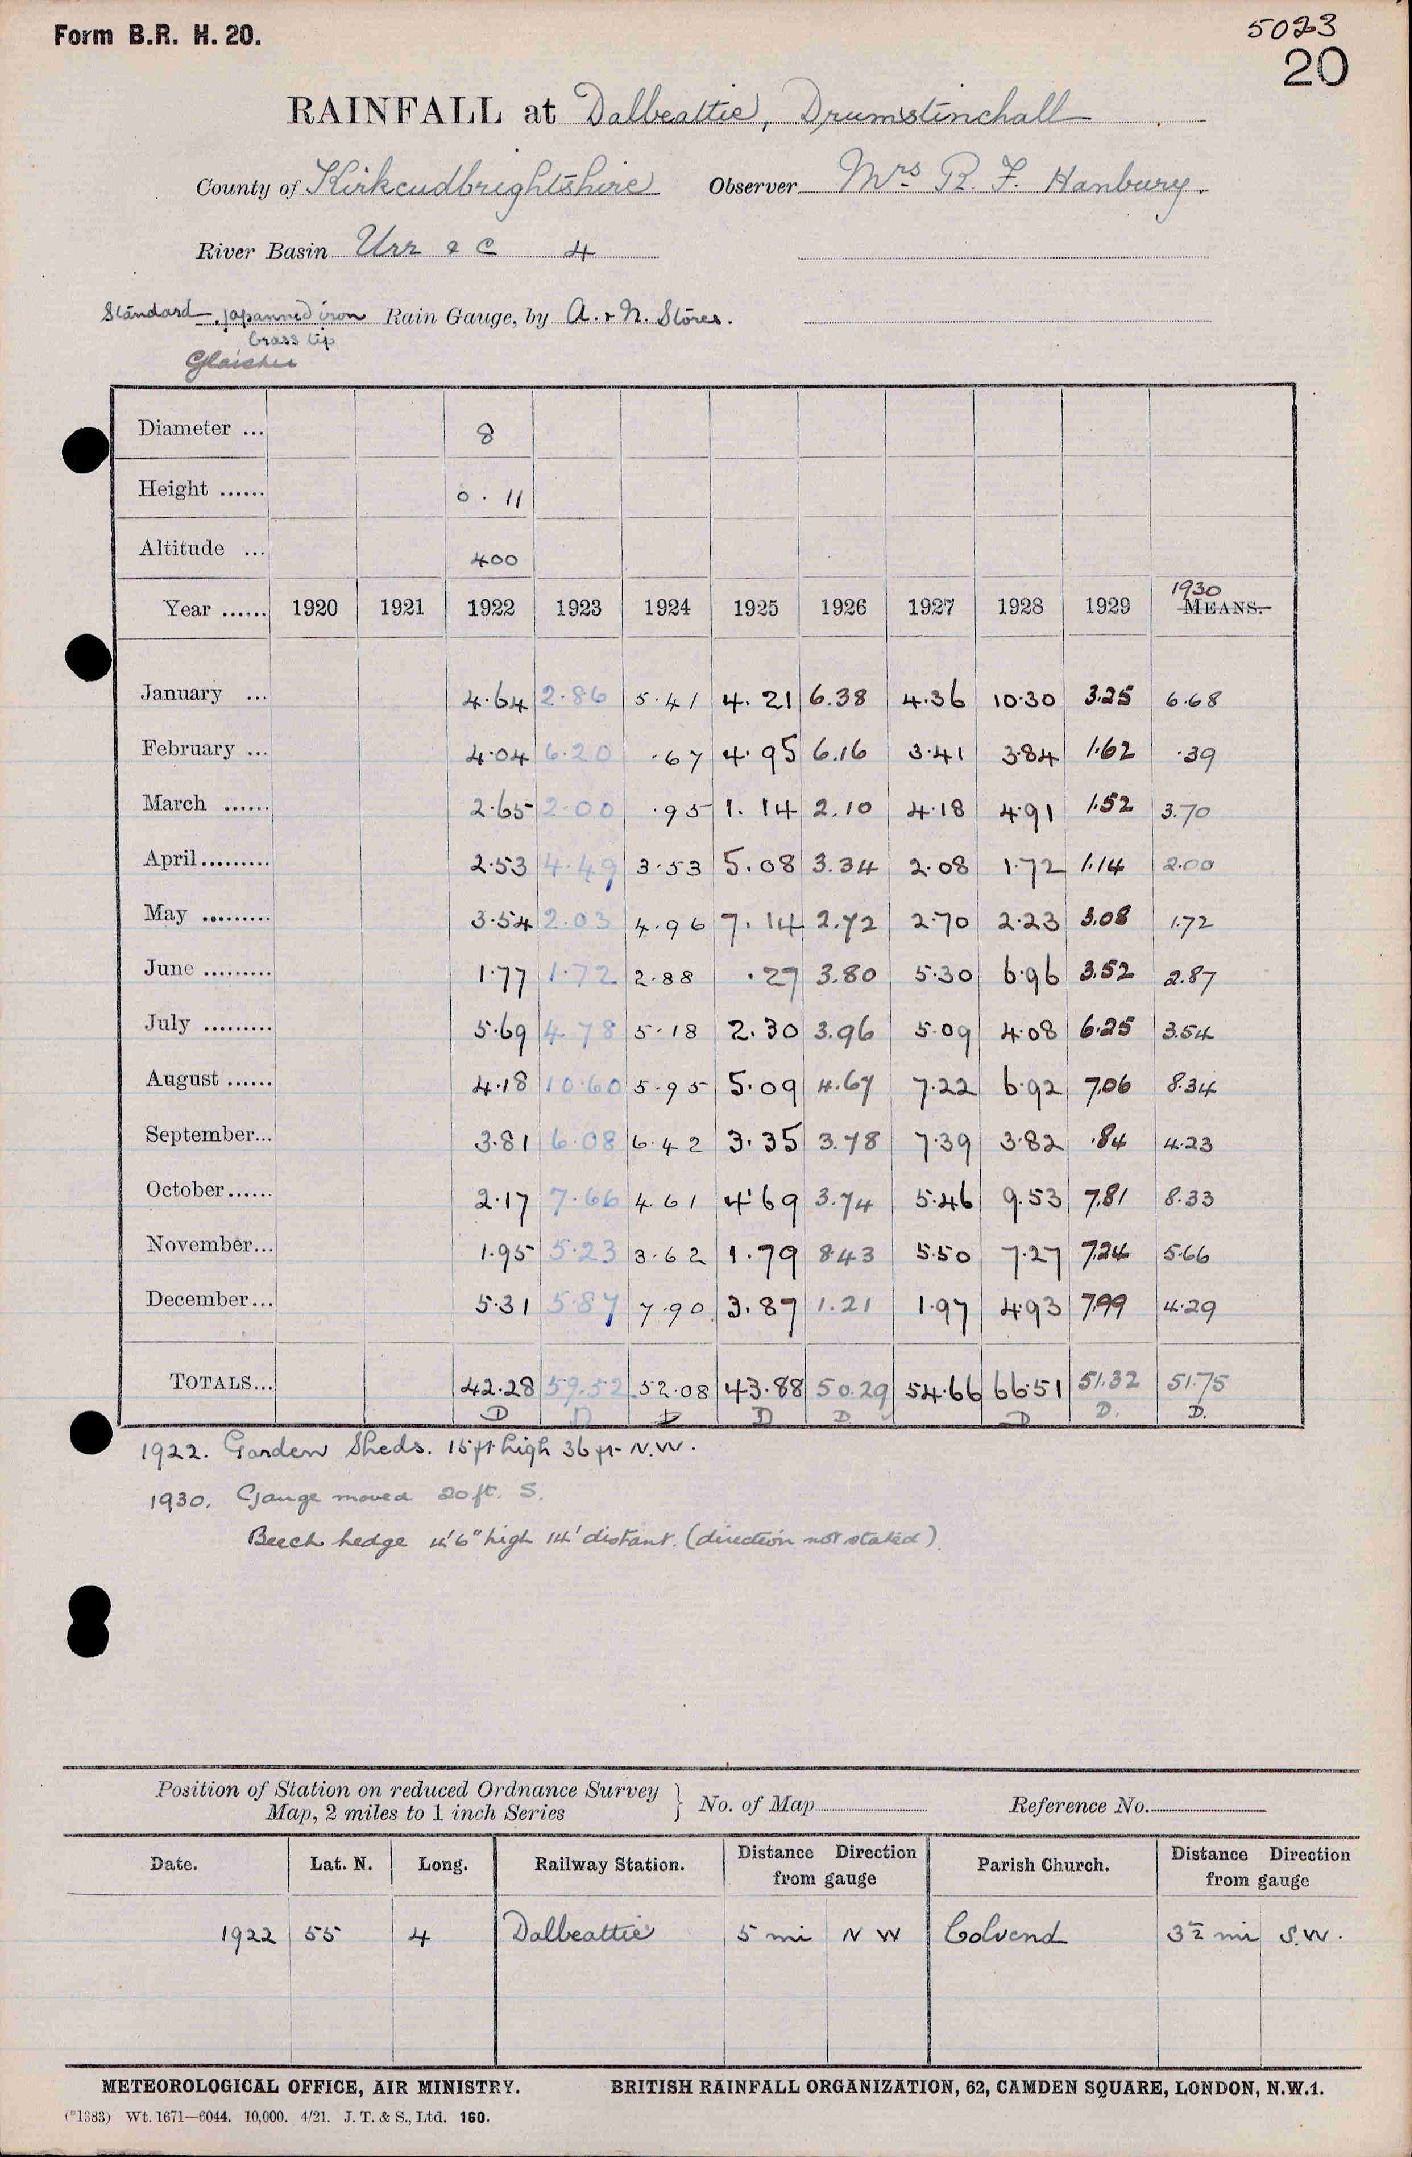 Form B.R. H. 20.
5023
20
RAINFALL at Dalbeattie, Drumstinchall
County of Kirkcudbrightshire Observer Mrs R. F. Hanbury.
River Basin Urr & C 4
Standard japanned iron Rain Gauge, by A. & N. Stores.
brass lip
Glaisher
Diameter ... 8
Height ...... 0 . 11
Altitude ... 400
1930
Year ...... 1920 1921 1922 1923 1924 1925 1926 1927 1928 1929 MEANS.
January ... 4.64 2.86 5.41 4.21 6.38 4.36 10.30 3.25 6.68
February ... 4.04 6.20 .67 4.95 6.16 3.41 3.84 1.62 .39
March ...... 2.65 2.00 .95 1.14 2.10 4.18 4.91 1.52 3.70
April ......... 2.53 4.49 3.53 5.08 3.34 2.08 1.72 1.14 2.00
May ......... 3.54 2.03 4.96 7.14 2.72 2.70 2.23 3.08 1.72
June ......... 1.77 1.72 2.88 .27 3.80 5.30 6.96 3.52 2.87
July ......... 5.69 4.78 5.18 2.30 3.96 5.09 4.08 6.25 3.54
August ...... 4.18 10.60 5.95 5.09 4.67 7.22 6.92 7.06 8.34
September... 3.81 6.08 6.42 3.35 3.78 7.39 3.82 .84 4.23
October ...... 2.17 7.66 4.61 4.69 3.74 5.46 9.53 7.81 8.33
November... 1.95 5.23 3.62 1.79 8.43 5.50 7.27 7.24 5.66
December... 5.31 5.87 7.90 3.87 1.21 1.97 4.93 7.99 4.29
TOTALS... 42.28 59.52 52.08 43.88 50.29 54.66 66.51 51.32 51.75
D D D D D. D D. D.
1922. Garden Sheds. 15 ft high 36 ft N.W.
1930. Gauge moved 20 ft. S.
Beech hedge 4'6" high 14' distant. (direction not stated).
Position of Station on reduced Ordnance Survey
Map, 2 miles to 1 inch Series } No. of Map Reference No.
Date. Lat. N. Long. Railway Station. Distance from gauge Direction Parish Church. Distance from gauge Direction
1922 55 4 Dalbeattie 5 mi N W Colvend 3½ mi S.W.
METEOROLOGICAL OFFICE, AIR MINISTRY. BRITISH RAINFALL ORGANIZATION, 62, CAMDEN SQUARE, LONDON, N.W.1.
(*1383) Wt. 1671—6044. 10,000. 4/21. J. T. & S., Ltd. 160.